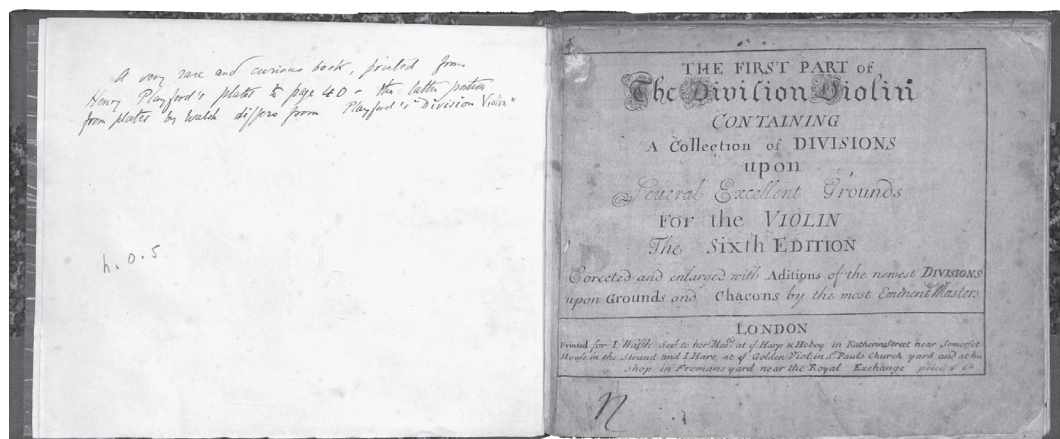 A very rare and curious book, printed from
Henry Playford's plates to page 40 - the latter portion
from plates by Walsh differs from Playford's "Division Violin"
h. 0. 5
THE FIRST PART of
The Division Violin
CONTAINING
A Collection of DIVISIONS
upon
Several Excellent Grounds
For the VIOLIN
The Sixth EDITION
Corected and enlarged with Aditions of the newest DIVISIONS
upon Grounds and Chacons by the most Eminent Masters
LONDON
Printed for I Walsh Servt to her Majty at ye Harp & Hoboy in Katherine Street near Somerset
House in the Strand and I Hare at ye Golden Viol in St Pauls Church yard and at his
shop in Fremans yard near the Royal Exchange price
n